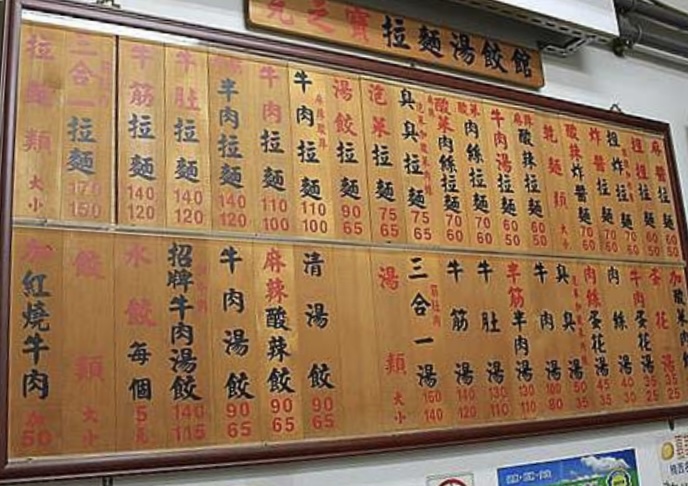 之寶拉麵湯餃館
拉麵類 大小
三合一拉麵 170 150
牛筋拉麵 140 120
牛肚拉麵 140 120
半肉拉麵 140 120
牛肉拉麵 110 100
牛肉拉麵 麻辣酸辣 110 100
湯餃拉麵 90 65
泡菜拉麵 75 65
臭臭拉麵 75 65
麻辣酸菜肉絲拉麵 70 60
酸菜肉絲拉麵 70 60
牛肉湯拉麵 70 60
麻辣酸辣拉麵 60 50
乾麵類 大小
酸辣炸醬麵 70 60
炸醬拉麵
炸拉麵 70 60
拉麵 60 50
麻醬拉麵 60 50
加紅燒牛肉 加50
餃類 大小
水餃每個5元
招牌牛肉湯餃 140 115
牛肉湯餃 90 65
麻辣酸辣餃 90 65
清湯餃 90 65
湯類 大小
三合一湯 筋肚肉 160 140
牛筋湯 140 120
牛肚湯 130 110
半筋半肉湯 130 110
牛肉湯 100 80
臭臭湯 50 35
肉絲蛋花湯 45 35
肉絲湯 40 30
牛肉蛋花湯 35 25
蛋花湯 35 25
加酸菜肉